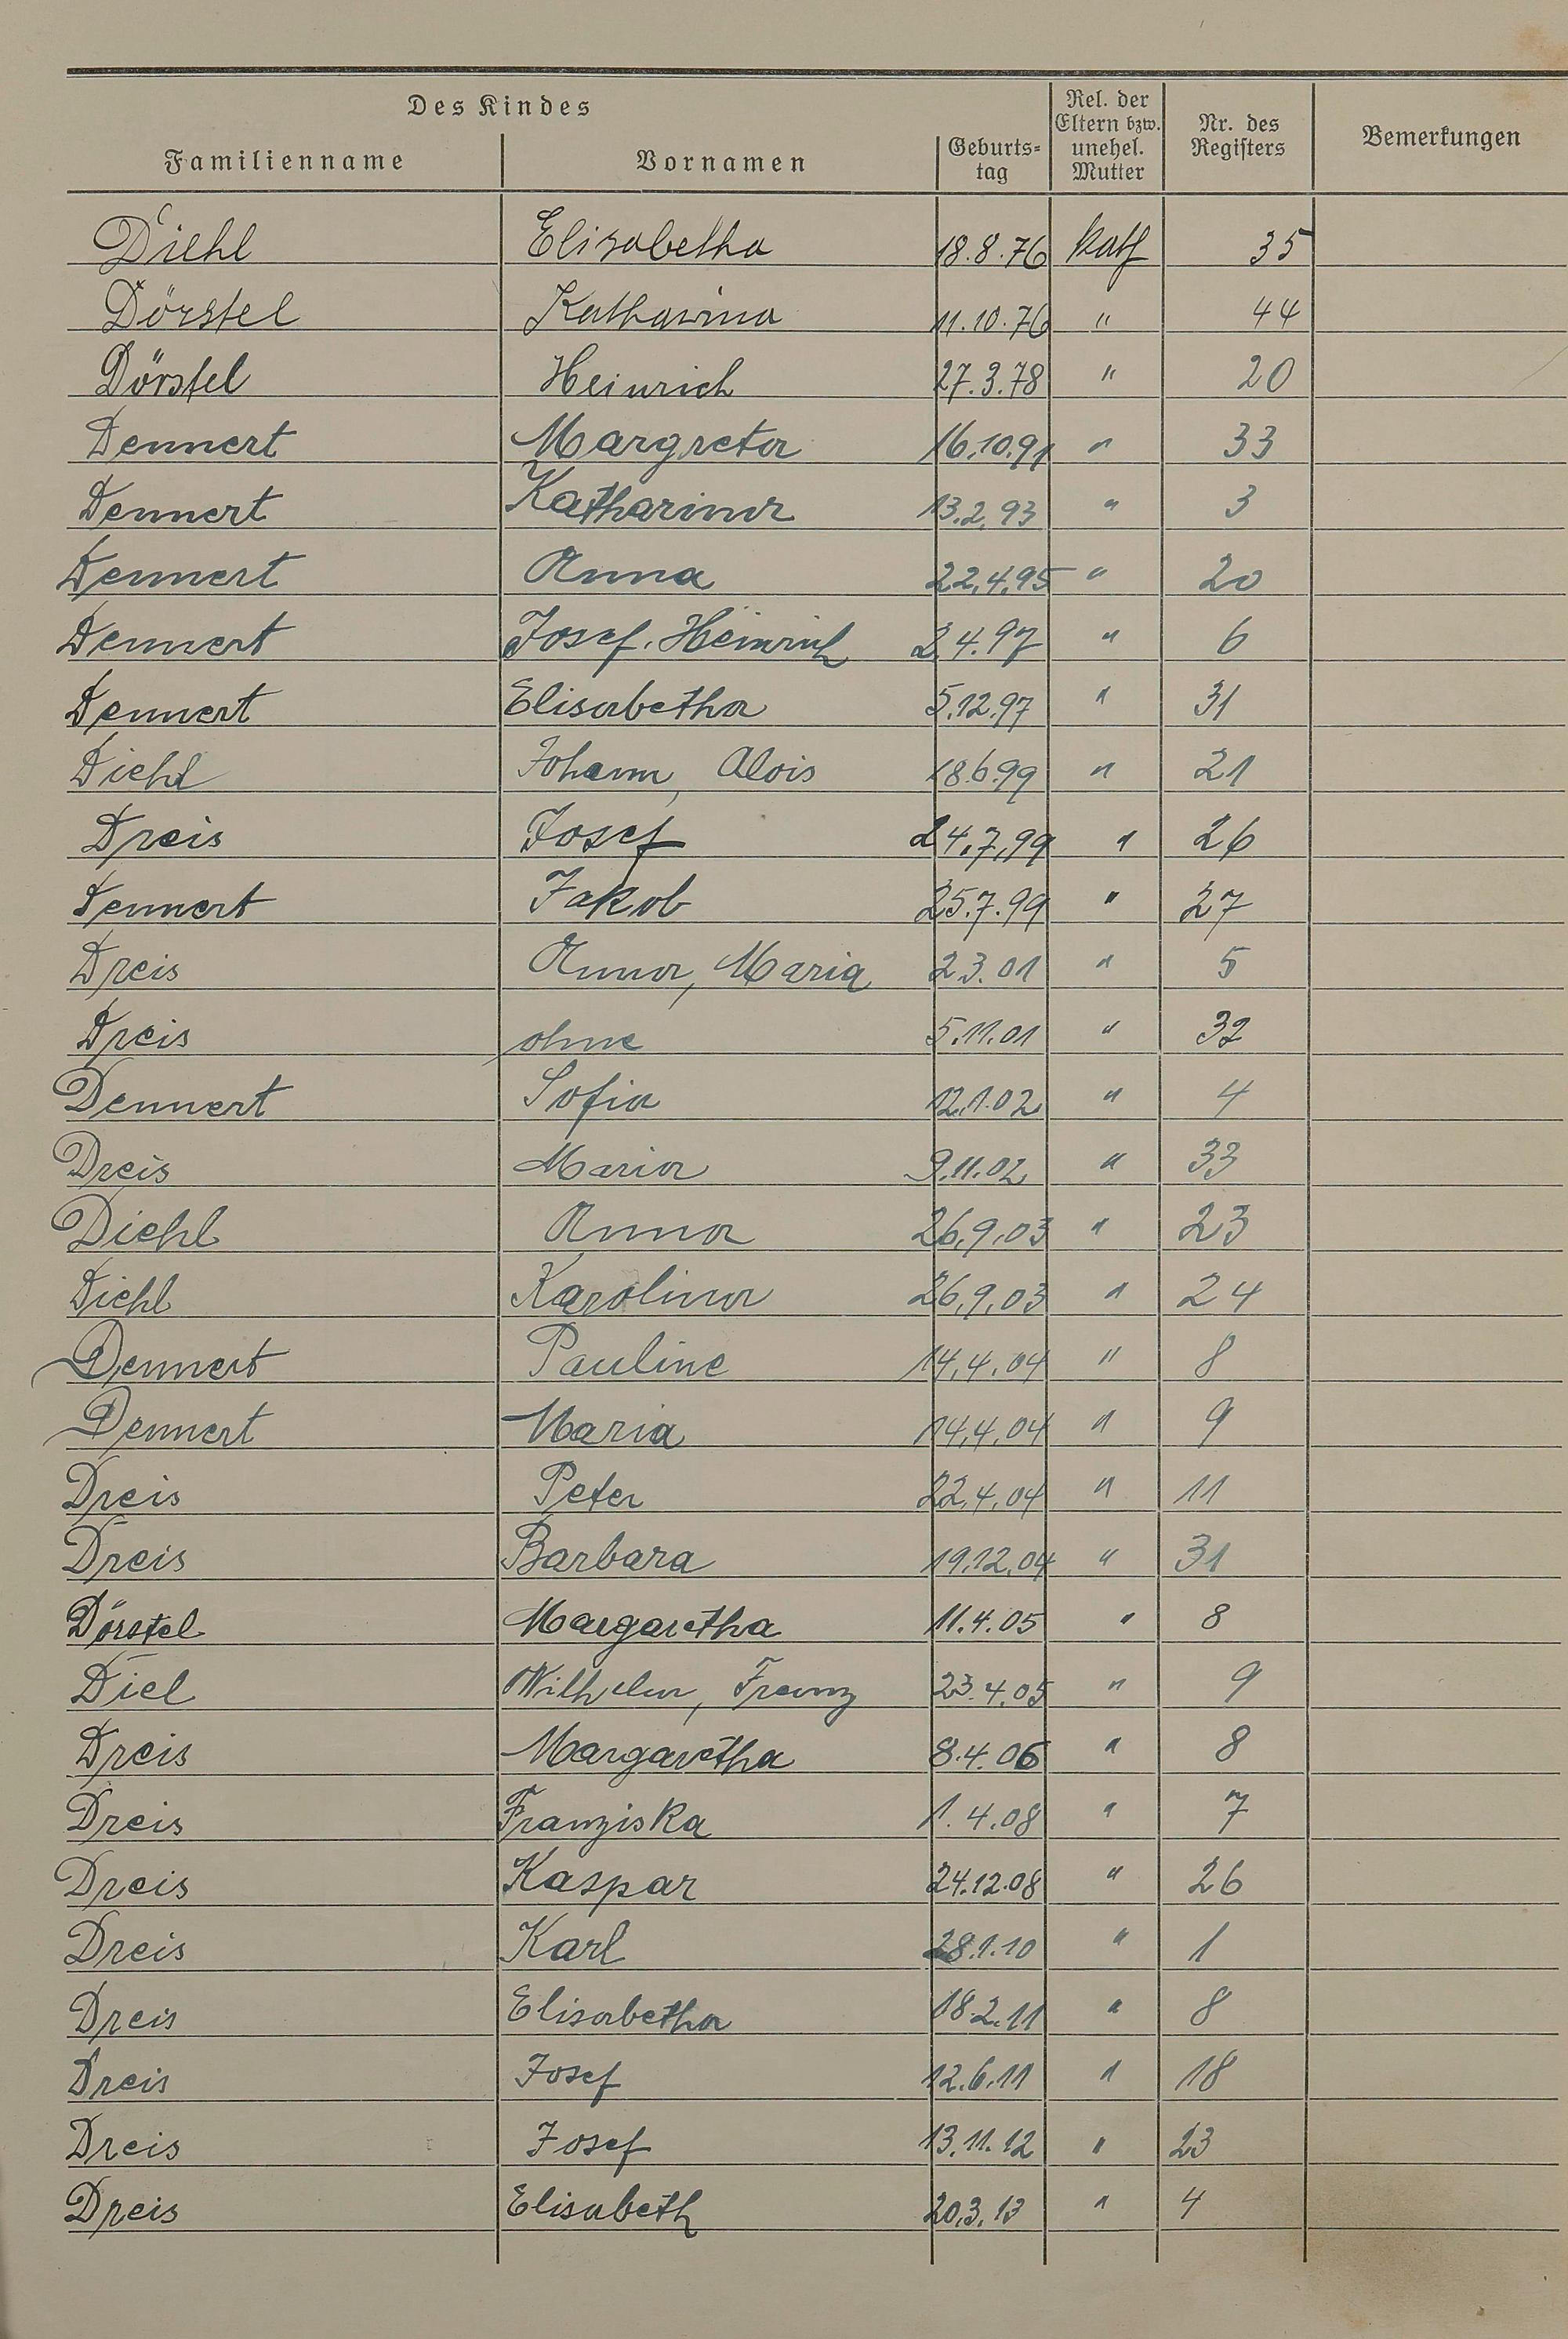 Des Kindes
Familienname Vornamen Geburts=tag Rel. der Eltern bzw. unehel. Mutter Nr. des Registers Bemerkungen
Diehl Elisabetha 18.8.76 kath 35
Dörstel Katharina 11.10.76 " 44
Dörstel Heinrich 27.3.78 " 20
Dennert Margreta 16.10.91 " 33
Dennert Katharina 13.2.93 " 3
Dennert Anna 22.4.95 " 20
Dennert Josef. Heinrich 2.4.97 " 6
Dennert Elisabetha 5.12.97 " 31
Diehl Johann, Alois 18.6.99 " 21
Dreis Josef 24.7.99 " 26
Dennert Jakob 25.7.99 " 27
Dreis Anna, Maria 2 3.01 " 5
Dreis ohne 5.11.01 " 32
Dennert Sofia 12.1.02 " 4
Dreis Maria 9.11.02 " 33
Diehl Anna 26.9.03 " 23
Diehl Karolina 26.9.03 " 24
Dennert Pauline 14.4.04 " 8
Dennert Maria 14.4.04 " 9
Dreis Peter 22.4.04 " 11
Dreis Barbara 19.12.04 " 31
Dörstel Margaretha 11.4.05 " 8
Diel Wilhelm, Franz 23.4.05 " 9
Dreis Margaretha 8.4.06 " 8
Dreis Franziska 1.4.08 " 7
Dreis Kaspar 24.12.08 " 26
Dreis Karl 28.1.10 " 1
Dreis Elisabetha 18.2.11 " 8
Dreis Josef 12.6.11 " 18
Dreis Josef 13.11.12 " 23
Dreis Elisabeth 20.3.13 " 4